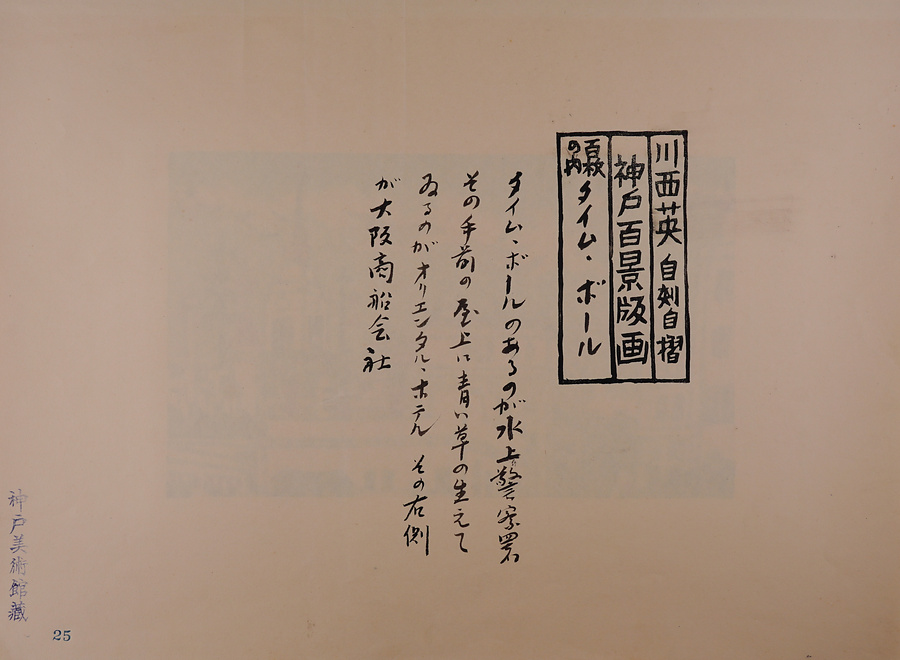 川西英 自刻自摺
神戸百景版画
百枚の内 タイム・ボール
タイム・ボールのあるのが水上警察署
その手前の屋上に青い草の生えて
ゐるのがオリエンタル・ホテル その右側
が大阪商船会社
神戸美術館蔵
25